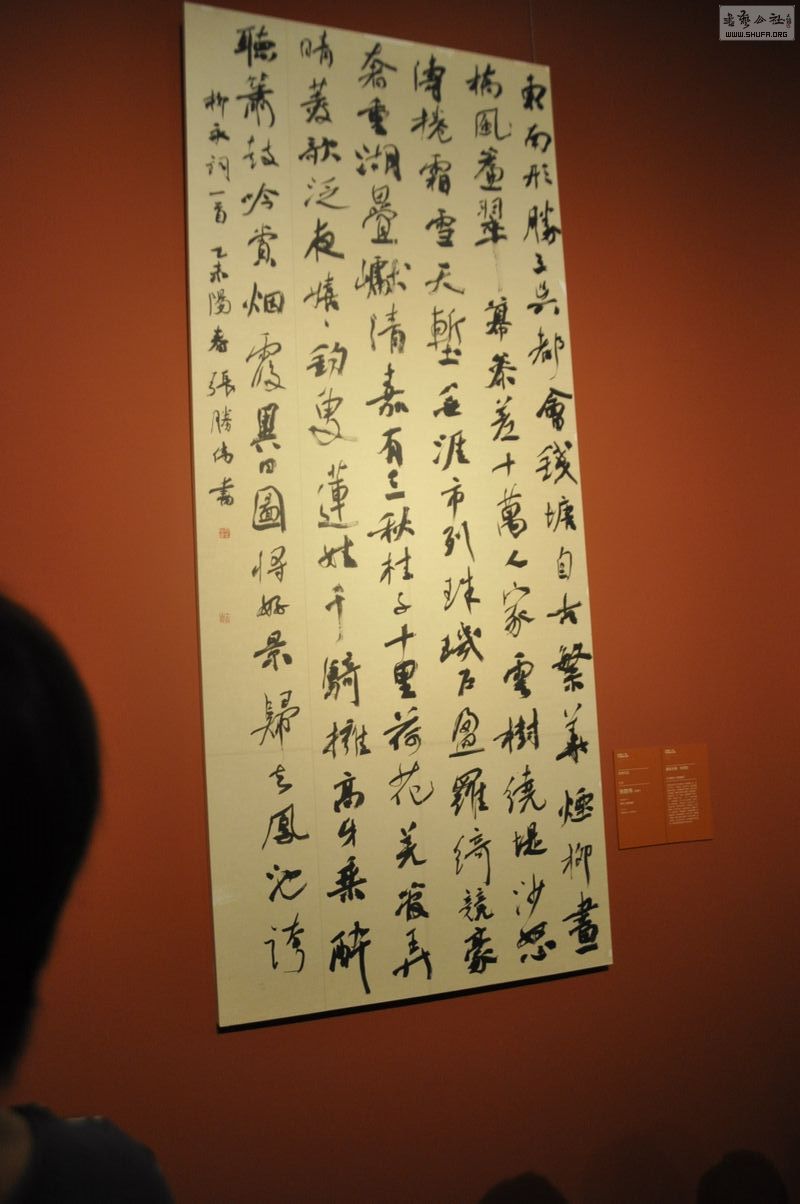 東南形勝三吳都會錢塘自古繁華煙柳畫
橋風簾翠幕參差十萬人家雲樹繞堤沙怒
濤捲霜雪天塹無涯市列珠璣戶盈羅綺競豪
奢重湖疊巘清嘉有三秋桂子十里荷花羌管弄
晴菱歌泛夜嬉〻釣叟蓮娃千騎擁高牙乘醉
聽簫鼓吟賞烟霞異日圖將好景歸去鳳池誇
柳永詞一首 乙未陽春 張勝偉書
書藝公社
WWW.SHUFA.ORG